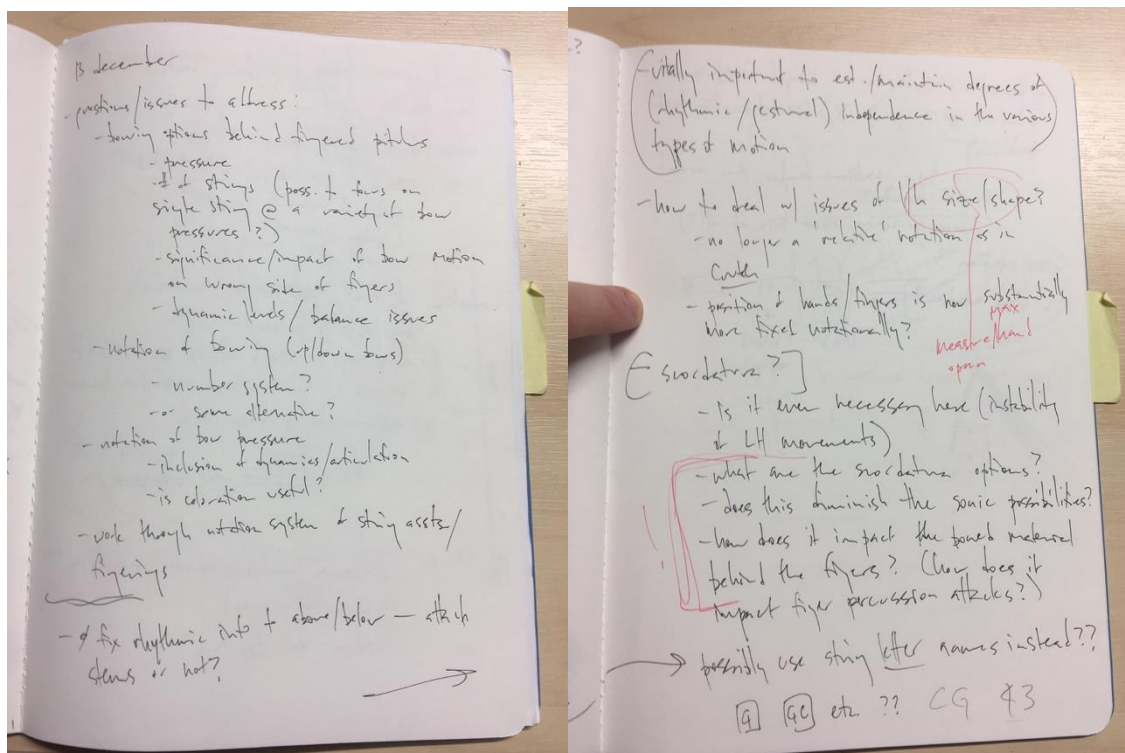 13 december
- questions/issues to address:
- bowing options behind fingered pitches
- pressure
- # of strings (poss. to focus on
single string @ a variety of bow
pressures?)
- significance/impact of bow motion
on wrong side of fingers
- dynamic levels/balance issues
- notation of bowing (up/down bows)
- number system?
- or some alternative?
- notation of bow pressure
- inclusion of dynamics/articulation
- is coloration useful?
- work through notation system of string assts/
fingerings
- fix rhythmic info to above/below — attach
stems or not?
- vitally important to est./maintain degrees of
(rhythmic/gestural) independence in the various
types of motion
- how to deal w/ issues of lh size/shape?
- no longer a 'relative' notation as in
- position of hands/fingers is now substantially
more fixed notationally?
max
measure/hand
open
[scordatura?]
- Is it even necessary here (instability
of LH movements)
- what are the scordatura options?
- does this diminish the sonic possibilities?
- how does it impact the bowed material
behind the fingers? (how does it
impact finger percussion attacks?)
→ possibly use string letter names instead??
[G] [GC] etc ?? CG 43